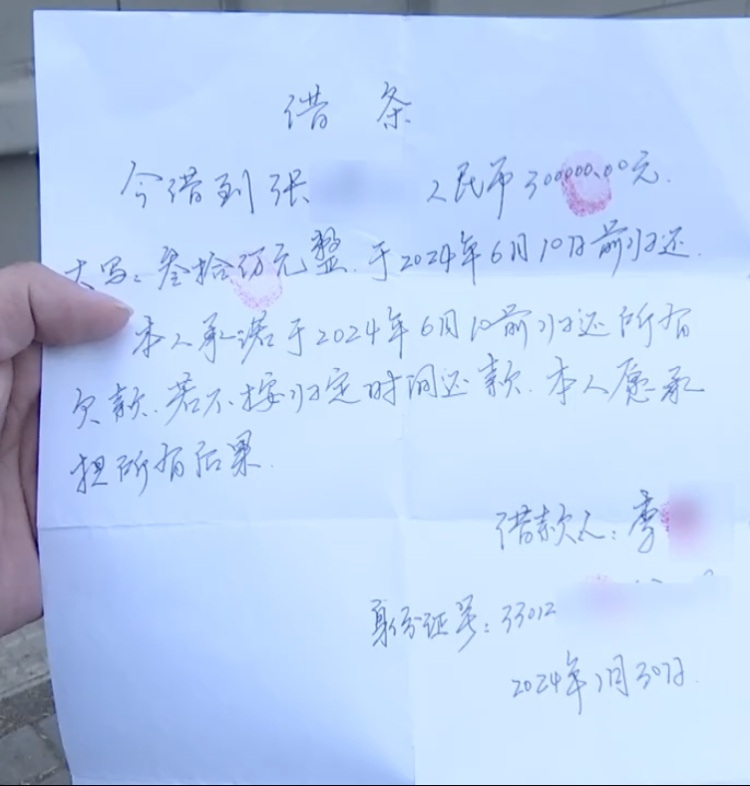 借条
今借到张 人民币300000.00元.
大写:叁拾万元整.于2024年6月10日前归还.
本人承诺于2024年6月10前归还所有
欠款.若不按归定时间还款.本人愿承
担所有后果.
借款人:李
身份证号:33012
2024年1月30日.